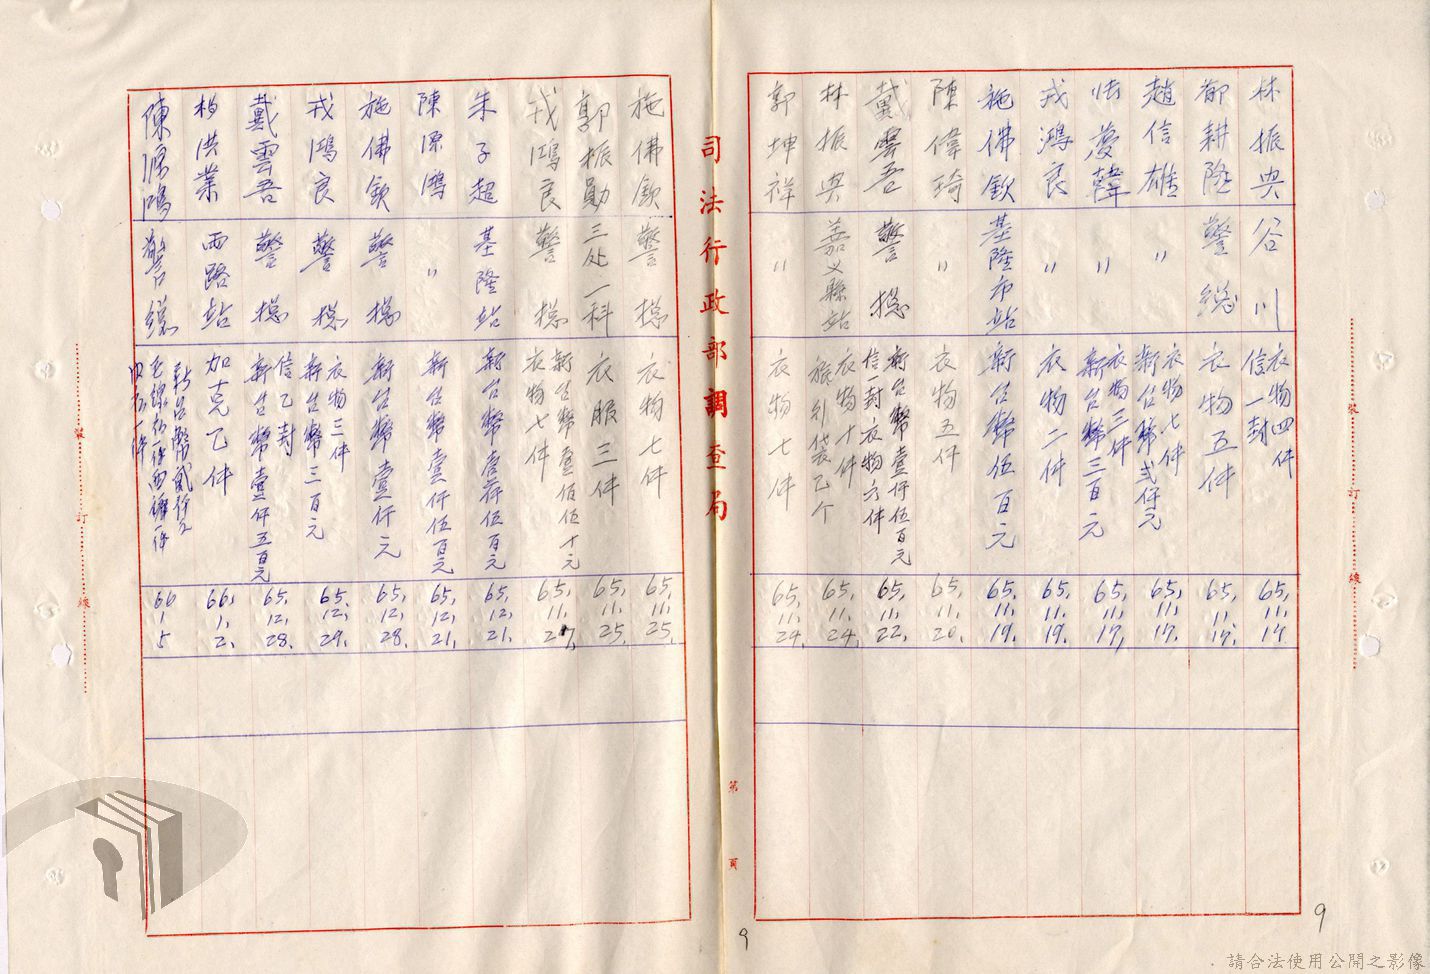 林振央 谷川 衣物四件 信一封 65.11.17.
郁耕陞 警總 衣物五件 65.11.17.
趙信雄 〃 衣物七件 新台幣貳仟元 65.11.17.
夢韓 〃 衣物三件 新台幣三百元 65.11.17,
戎鴻良 〃 衣物二件 65.11.19.
施佛欽 基隆市站 新台幣伍百元 65.11.19.
陳偉琦 〃 衣物五件 65.11.20.
戴雲吾 警總 新台幣壹仟伍百元 信一封衣物六件 65.11.22.
林振央 嘉义縣站 衣物十件 旅行袋乙个 65.11.24.
郭坤祥 〃 衣物七件 65.11.24.
司法行政部調查局
第 頁
施佛欽 警總 衣物七件 65.11.25.
郭振勛 三处一科 衣服三件 65.11.25.
戎鴻良 警總 新台幣壹佰伍十元 衣物七件 65.11.27,
朱子超 基隆站 新台幣壹仟伍百元 65.12.21.
陳源鴻 〃 新台幣壹仟伍百元 65.12.21.
施佛欽 警總 新台幣壹仟元 65.12.28.
戎鴻良 警總 衣物三件 新台幣三百元 65.12.29.
戴雲吾 警總 信乙封 新台幣壹仟五百元 65.12.28.
洪業 西路站 加克乙件 66.1.2.
陳源鴻 警總 新台幣貳仟元 毛線 件 件 66 1 5
裝 訂 線
裝 訂 線
9
9
請合法使用公開之影像